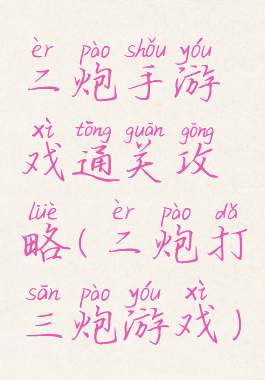 èr pào shǒu yóu
二炮手游
xì tōng guān gōng
戏通关攻
lüè èr pào dǎ
略(二炮打
sān pào yóu xì
三炮游戏)